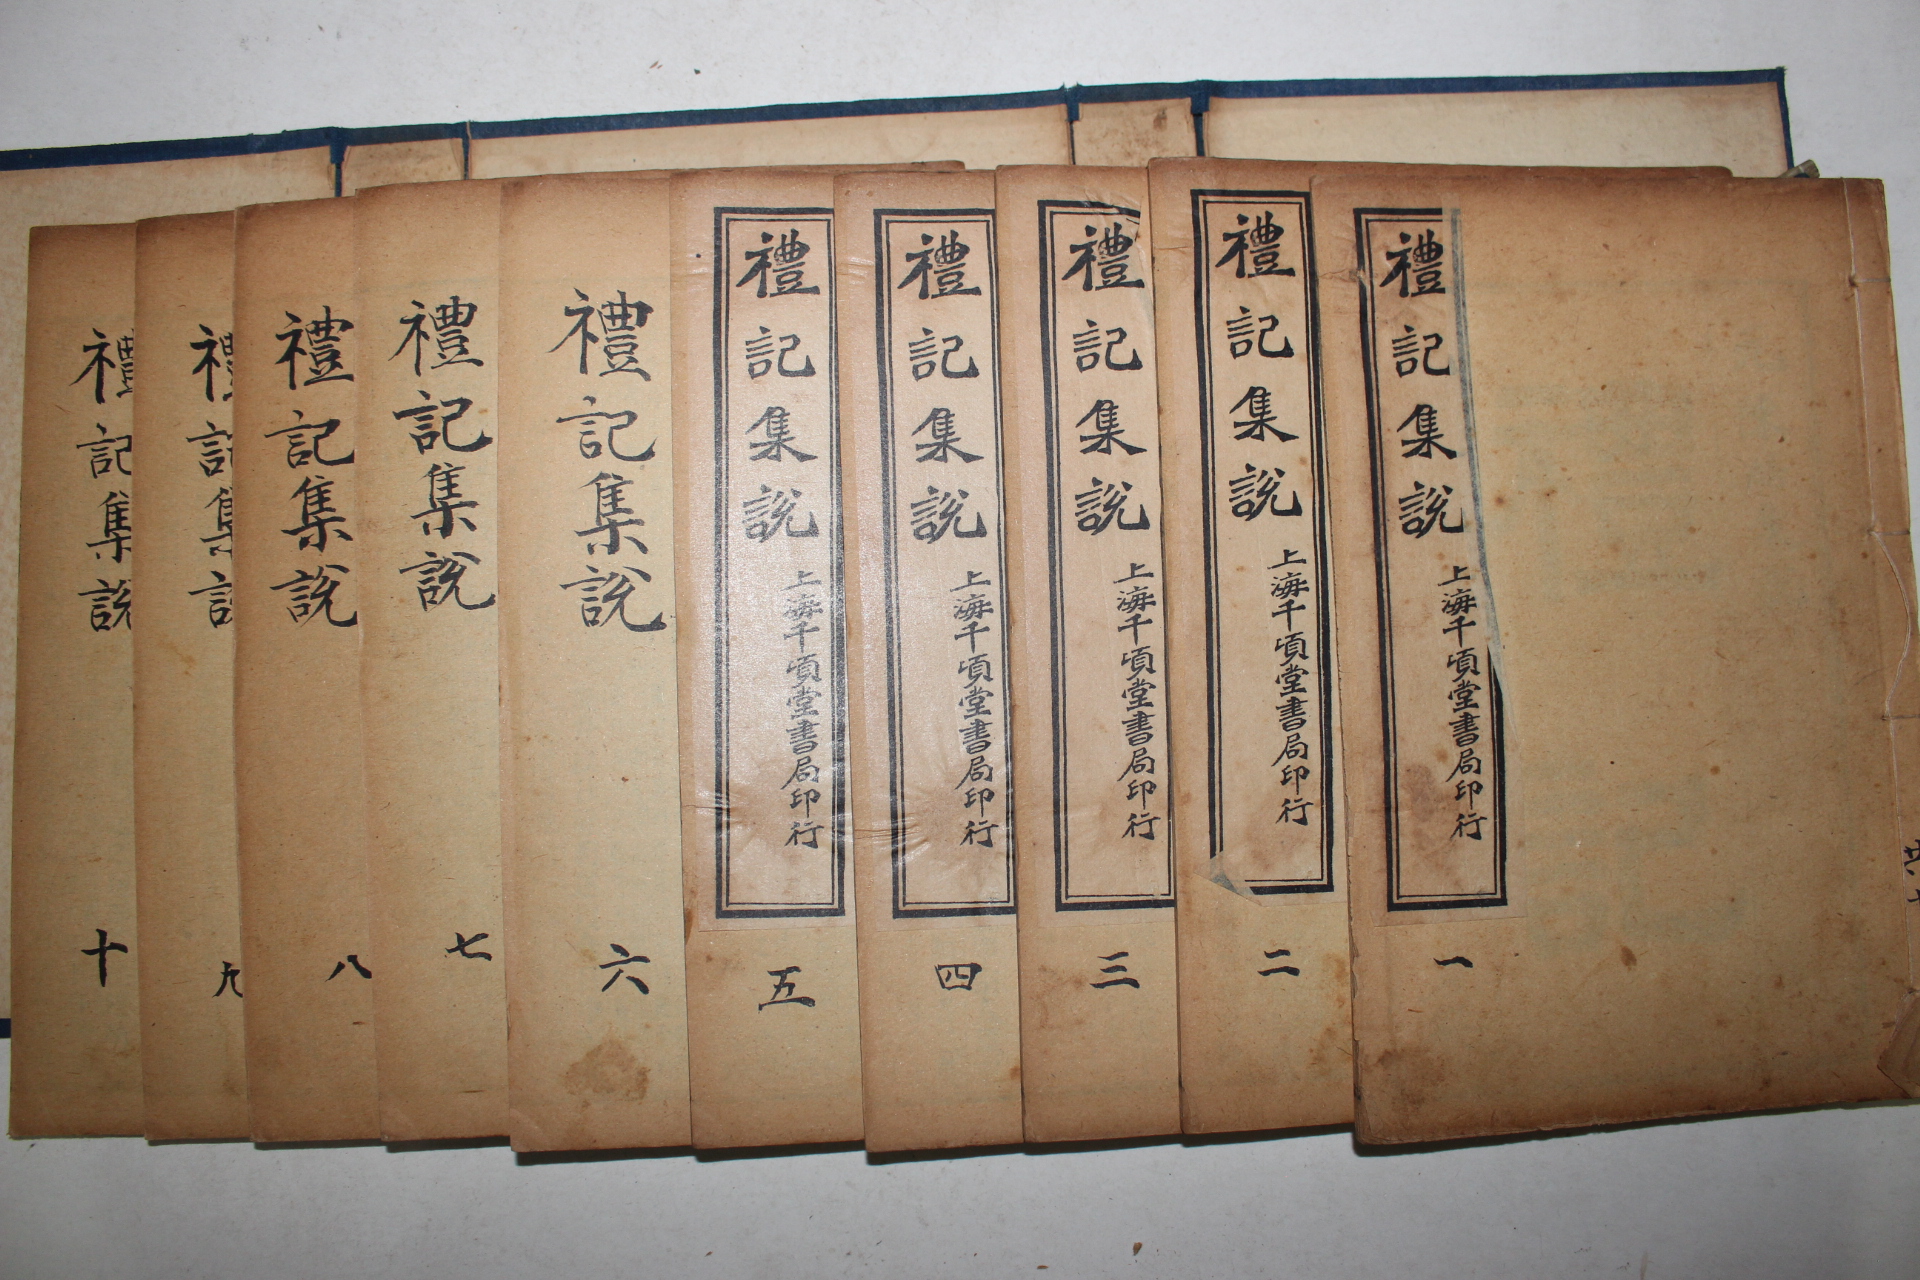 禮記集說
上海千頃堂書局印行
一
禮記集說
上海千頃堂書局印行
二
禮記集說
上海千頃堂書局印行
三
禮記集說
上海千頃堂書局印行
四
禮記集說
上海千頃堂書局印行
五
禮記集說
六
禮記集說
七
禮記集說
八
禮記集說
九
禮記集說
十
共十